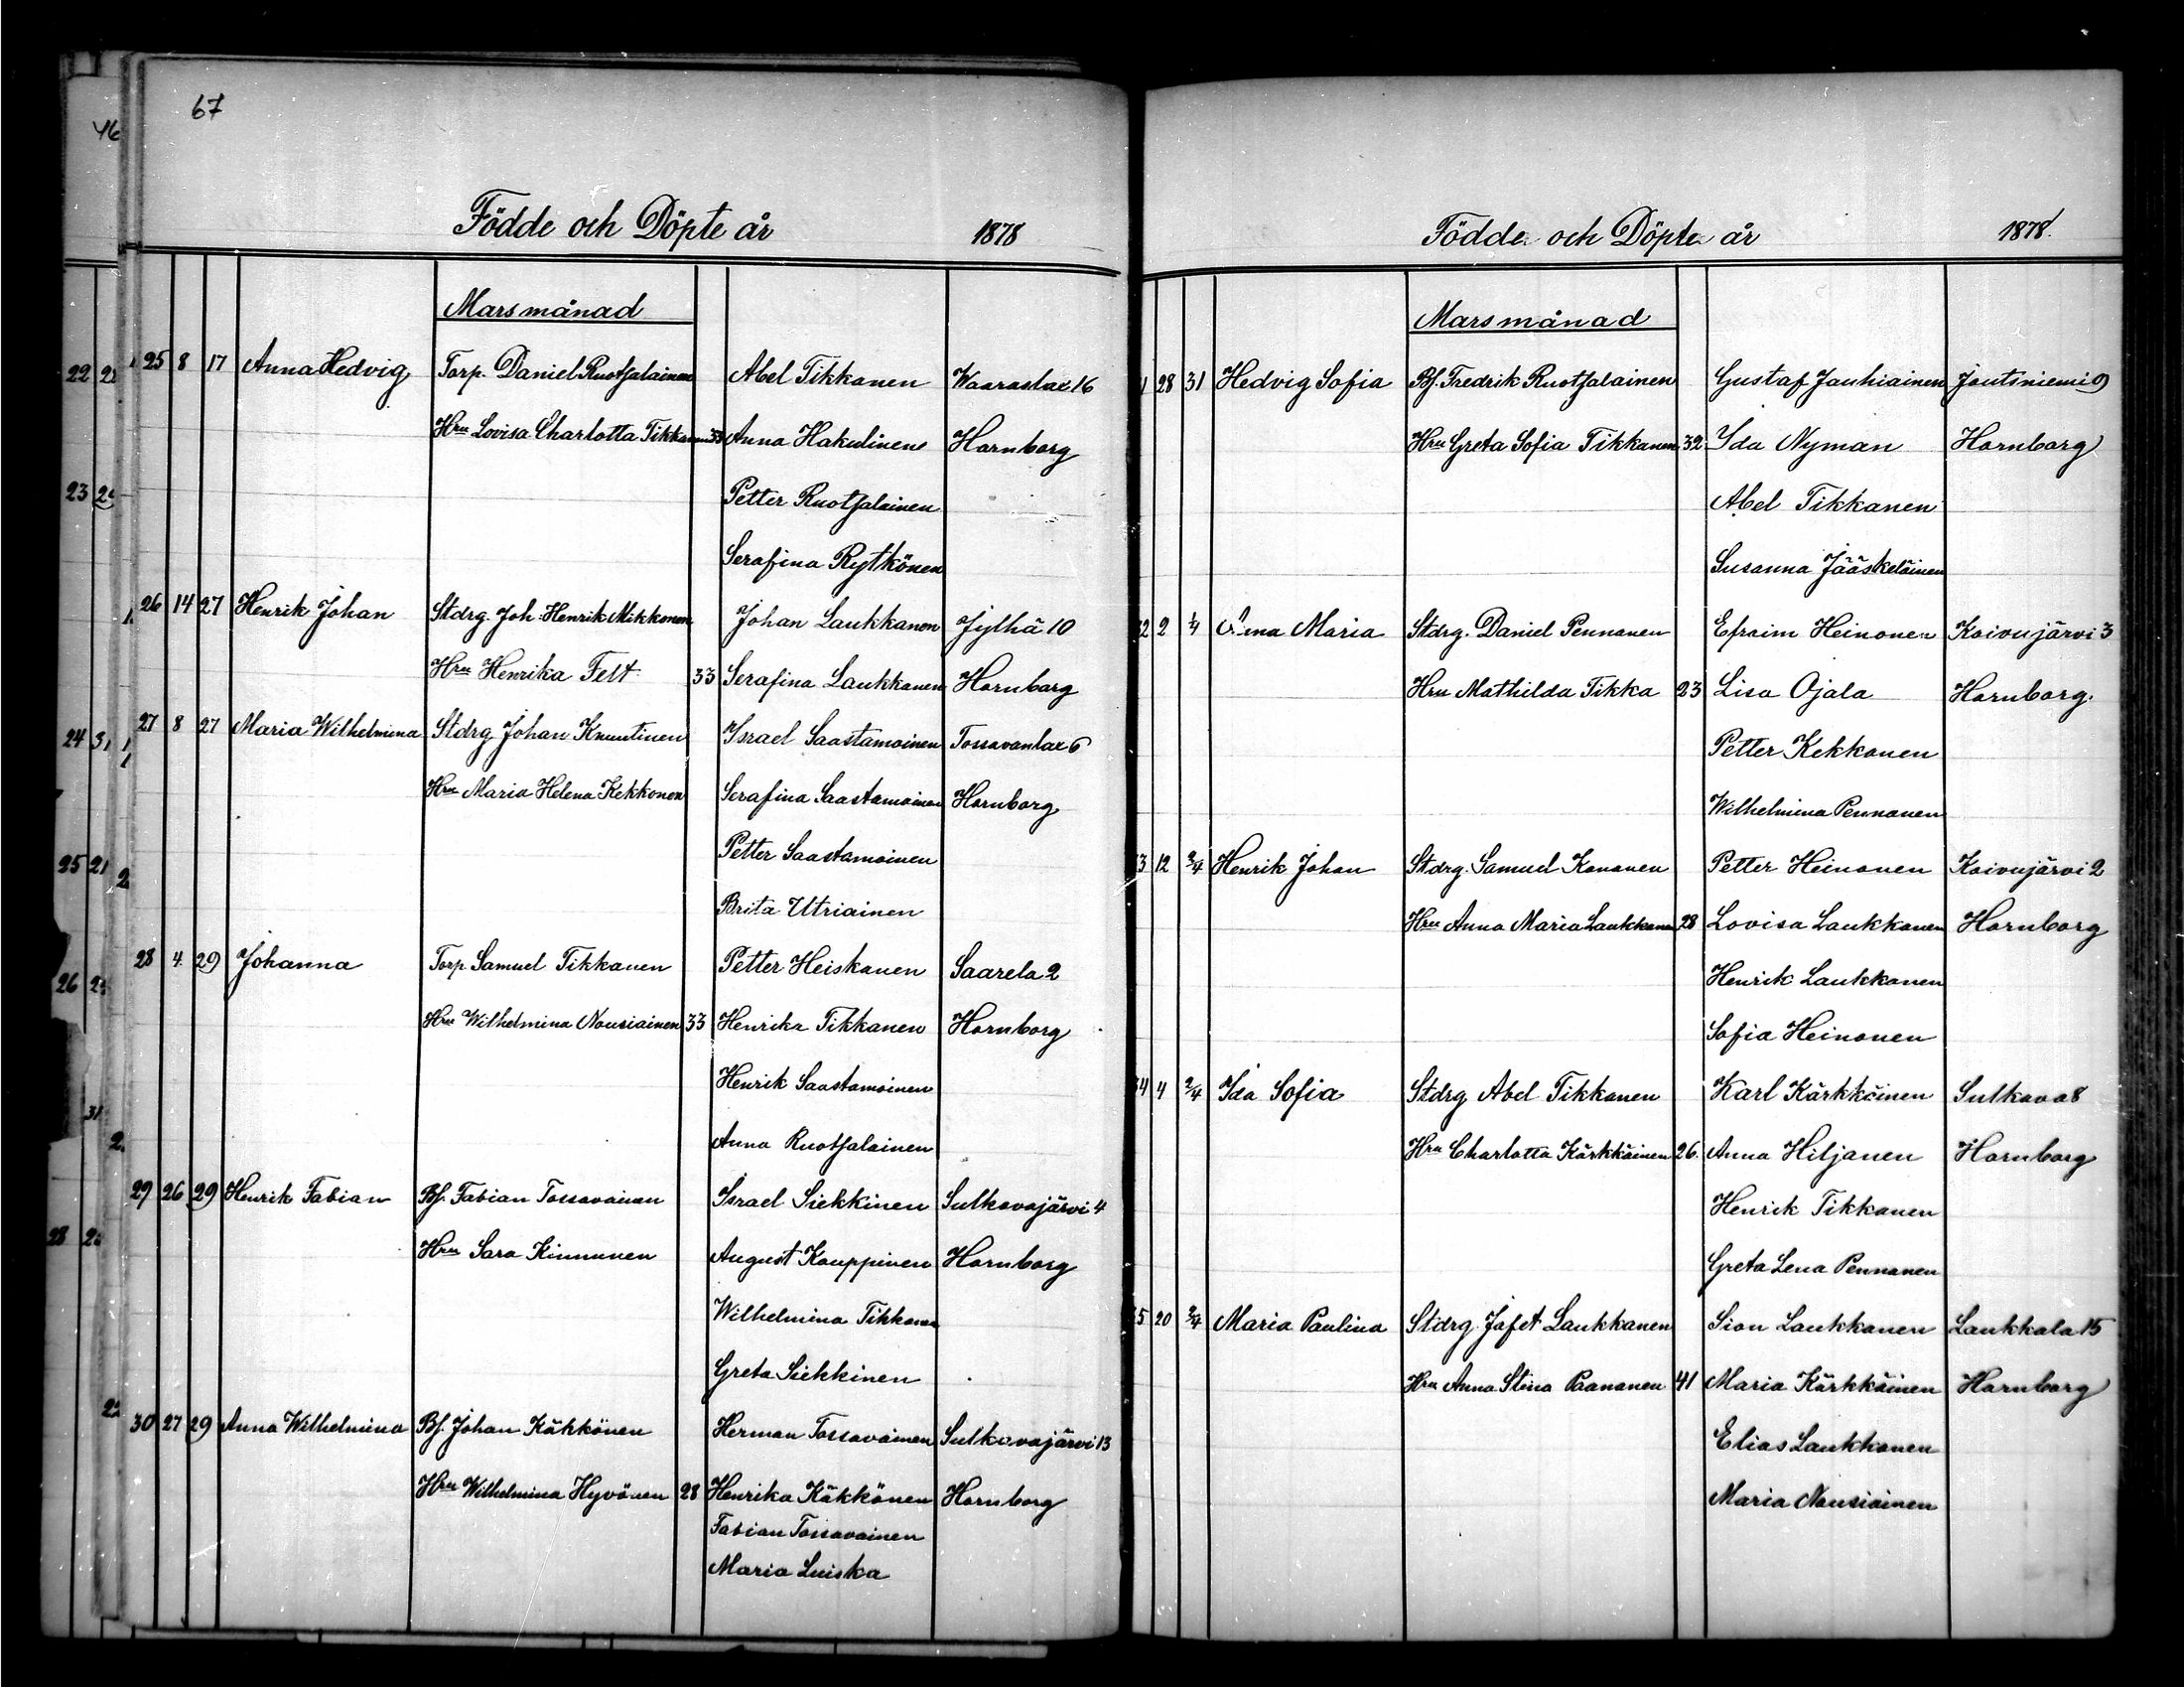 67
46
Födde och Döpte år 1878
Marsmånad
25 8 17 Anna Hedvig Torp. Daniel Ruotsalainen Abel Tikkanen Waaraslax 16
Hru Lovisa Charlotta Tikkanen 33 Anna Hakulinen Hornborg
Petter Ruotsalainen
Serafina Rytkönen
26 14 27 Henrik Johan Stdrg. Joh. Henrik Mikkonen Johan Laukkanen Jylhä 10
Hru Henrika Felt 33 Serafina Laukkanen Hornborg
27 8 27 Maria Wilhelmina Stdrg Johan Knuutinen Israel Saastamoinen Tossavanlax 6
Hru Maria Helena Kekkonen Serafina Saastamoinen Hornborg
Petter Saastamoinen
Brita Utriainen
28 4 29 Johanna Torp Samuel Tikkanen Petter Heiskanen Saarela 2
Hru Wilhelmina Nousiainen 33 Henrika Tikkanen Hornborg
Henrik Saastamoinen
Anna Ruotsalainen
29 26 29 Henrik Fabian Bf. Fabian Tossavainen Israel Siekkinen Sulkavajärvi 4
Hru Sara Kinnunen August Kauppinen Hornborg
Wilhelmina Tikkanen
Greta Siekkinen
30 27 29 Anna Wilhelmina Bf. Johan Käkkönen Herman Tossavainen Sulkavajärvi 13
Hru Wilhelmina Hyvönen 28 Henrika Käkkönen Hornborg
Fabian Tossavainen
Maria Luiska
Födde och Döpte år 1878.
Marsmånad
1 28 31 Hedvig Sofia Bf. Fredrik Ruotsalainen Gustaf Jauhiainen Joutsniemi 9
Hru Greta Sofia Tikkanen 32 Ida Nyman Hornborg
Abel Tikkanen
Susanna Jääskeläinen
32 2 1/4 Anna Maria Stdrg. Daniel Pennanen Efraim Heinonen Koivujärvi 3
Hru Mathilda Tikka 23 Lisa Ojala Hornborg.
Petter Kekkonen
Wilhelmina Pennanen
3 12 2/4 Henrik Johan Stdrg. Samuel Kononen Petter Heinonen Koivujärvi 2
Hru Anna Maria Laukkanen 28 Lovisa Laukkanen Hornborg
Henrik Laukkanen
Sofia Heinonen
34 4 2/4 Ida Sofia Stdrg Abel Tikkanen Karl Kärkkäinen Sulkava 8
Hru Charlotta Kärkkäinen 26. Anna Hiljanen Hornborg
Henrik Tikkanen
Greta Lena Pennanen
5 20 2/4 Maria Paulina Stdrg. Jafet Laukkanen Sion Laukkanen Laukkala 15
Hru Anna Stina Paananen 41 Maria Kärkkäinen Hornborg
Elias Laukkanen
Maria Nousiainen